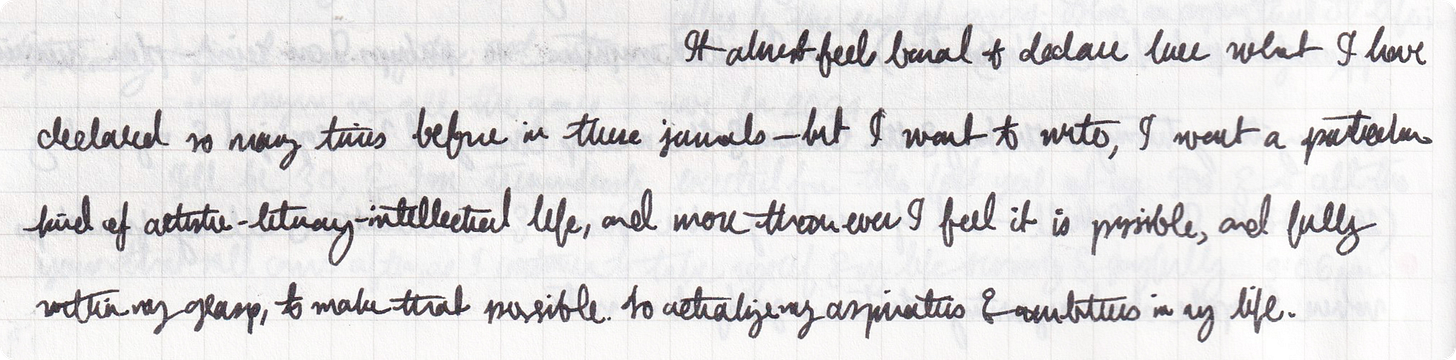 It almost feels banal to declare here what I have
declared so many times before in these journals—but I want to write, I want a particular
kind of artistic-literary-intellectual life, and more than ever I feel it is possible, and fully
within my grasp, to make that possible. To actualize my aspirations & ambitions in my life.